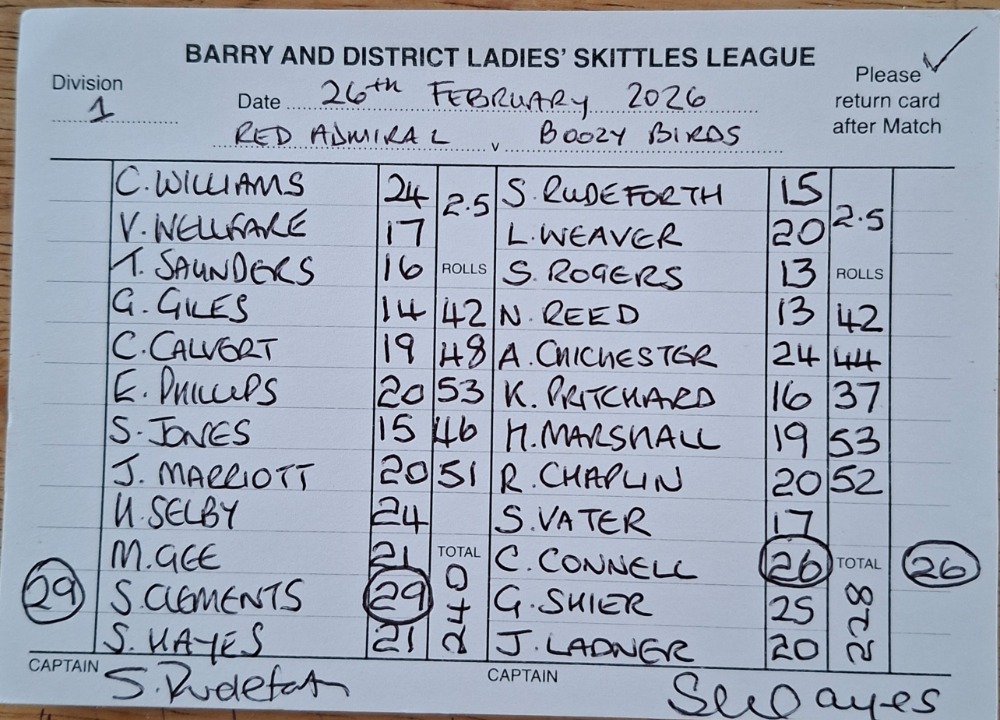 BARRY AND DISTRICT LADIES' SKITTLES LEAGUE
Division 1
Date 26th FEBRUARY 2026
Please return card after Match
RED ADMIRAL v BOOZY BIRDS
C. WILLIAMS 24 2.5 S. RUDEFORTH 15 2.5
V. WELLFARE 17 L. WEAVER 20
T. SAUNDERS 16 ROLLS S. ROGERS 13 ROLLS
G. GILES 14 42 N. REED 13 42
C. CALVERT 19 48 A. CHICHESTER 24 44
E. PHILLIPS 20 53 K. PRITCHARD 16 37
S. JONES 15 46 H. MARSHALL 19 53
J. MARRIOTT 20 51 R. CHAPLIN 20 52
H. SELBY 24 S. VATER 17
M. GEE 21 TOTAL C. CONNELL 26 TOTAL 26
29 S. CLEMENTS 29 240 G. SHIER 25 228
S. HAYES 21 J. LADNER 20
CAPTAIN S. Rudeforth CAPTAIN